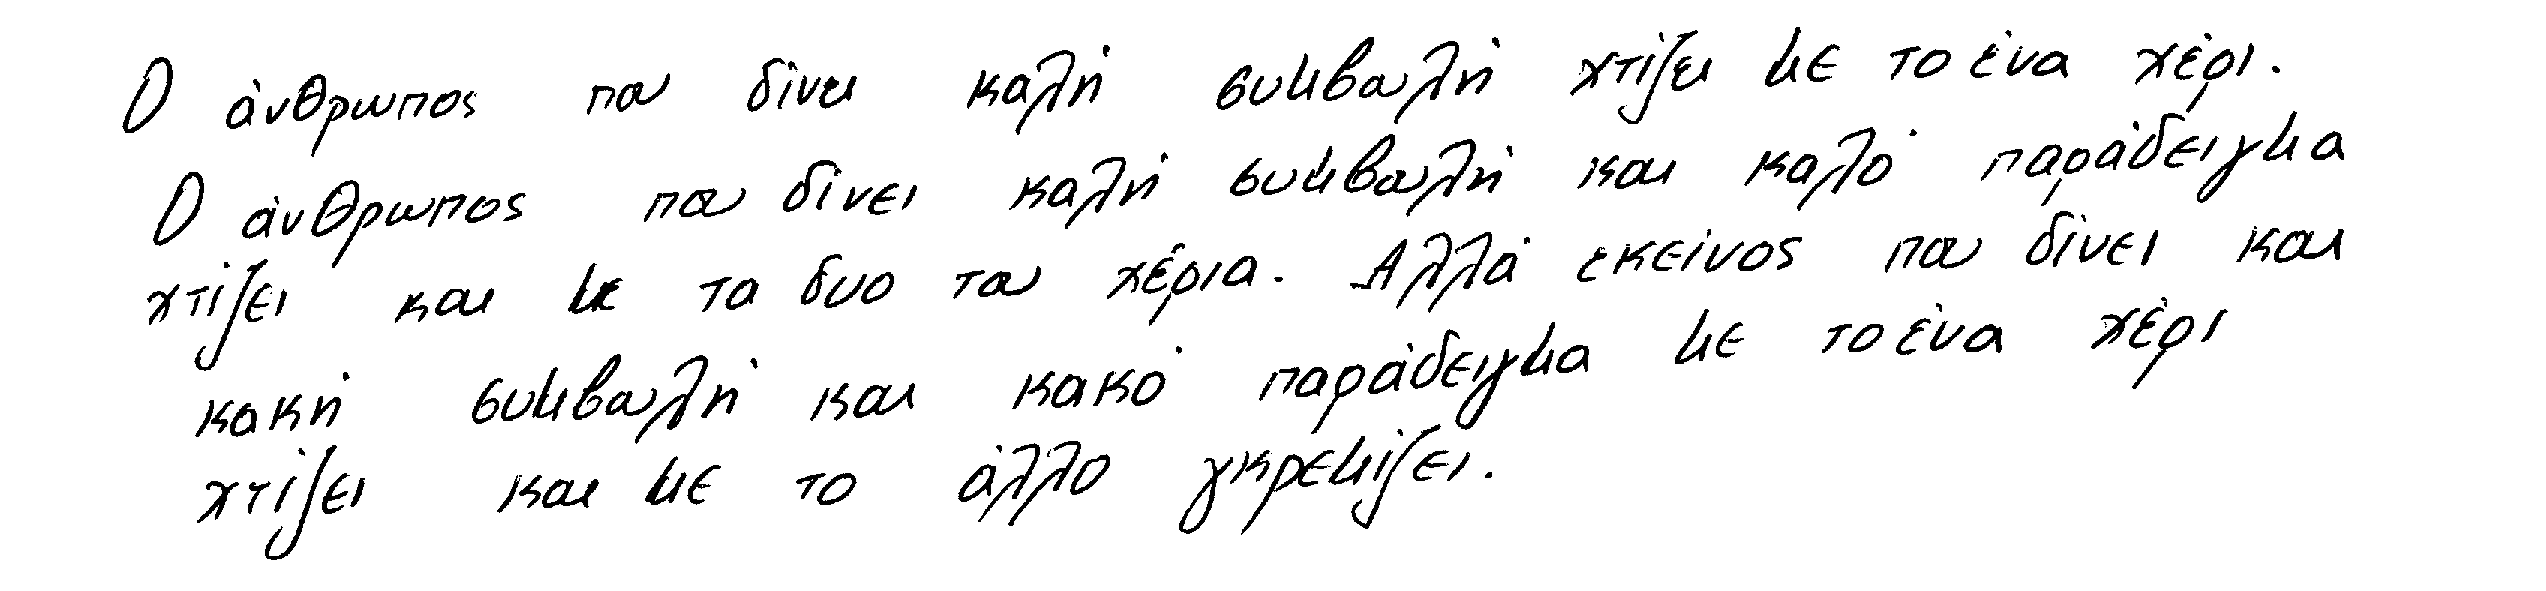 Ο άνθρωπος που δίνει καλή συμβουλή χτίζει με το ένα χέρι.
Ο άνθρωπος που δίνει καλή συμβουλή και καλό παράδειγμα
χτίζει και με τα δυο του χέρια. Αλλά εκείνος που δίνει και
κακή συμβουλή και κακό παράδειγμα με το ένα χέρι
χτίζει και με το άλλο γκρεμίζει.